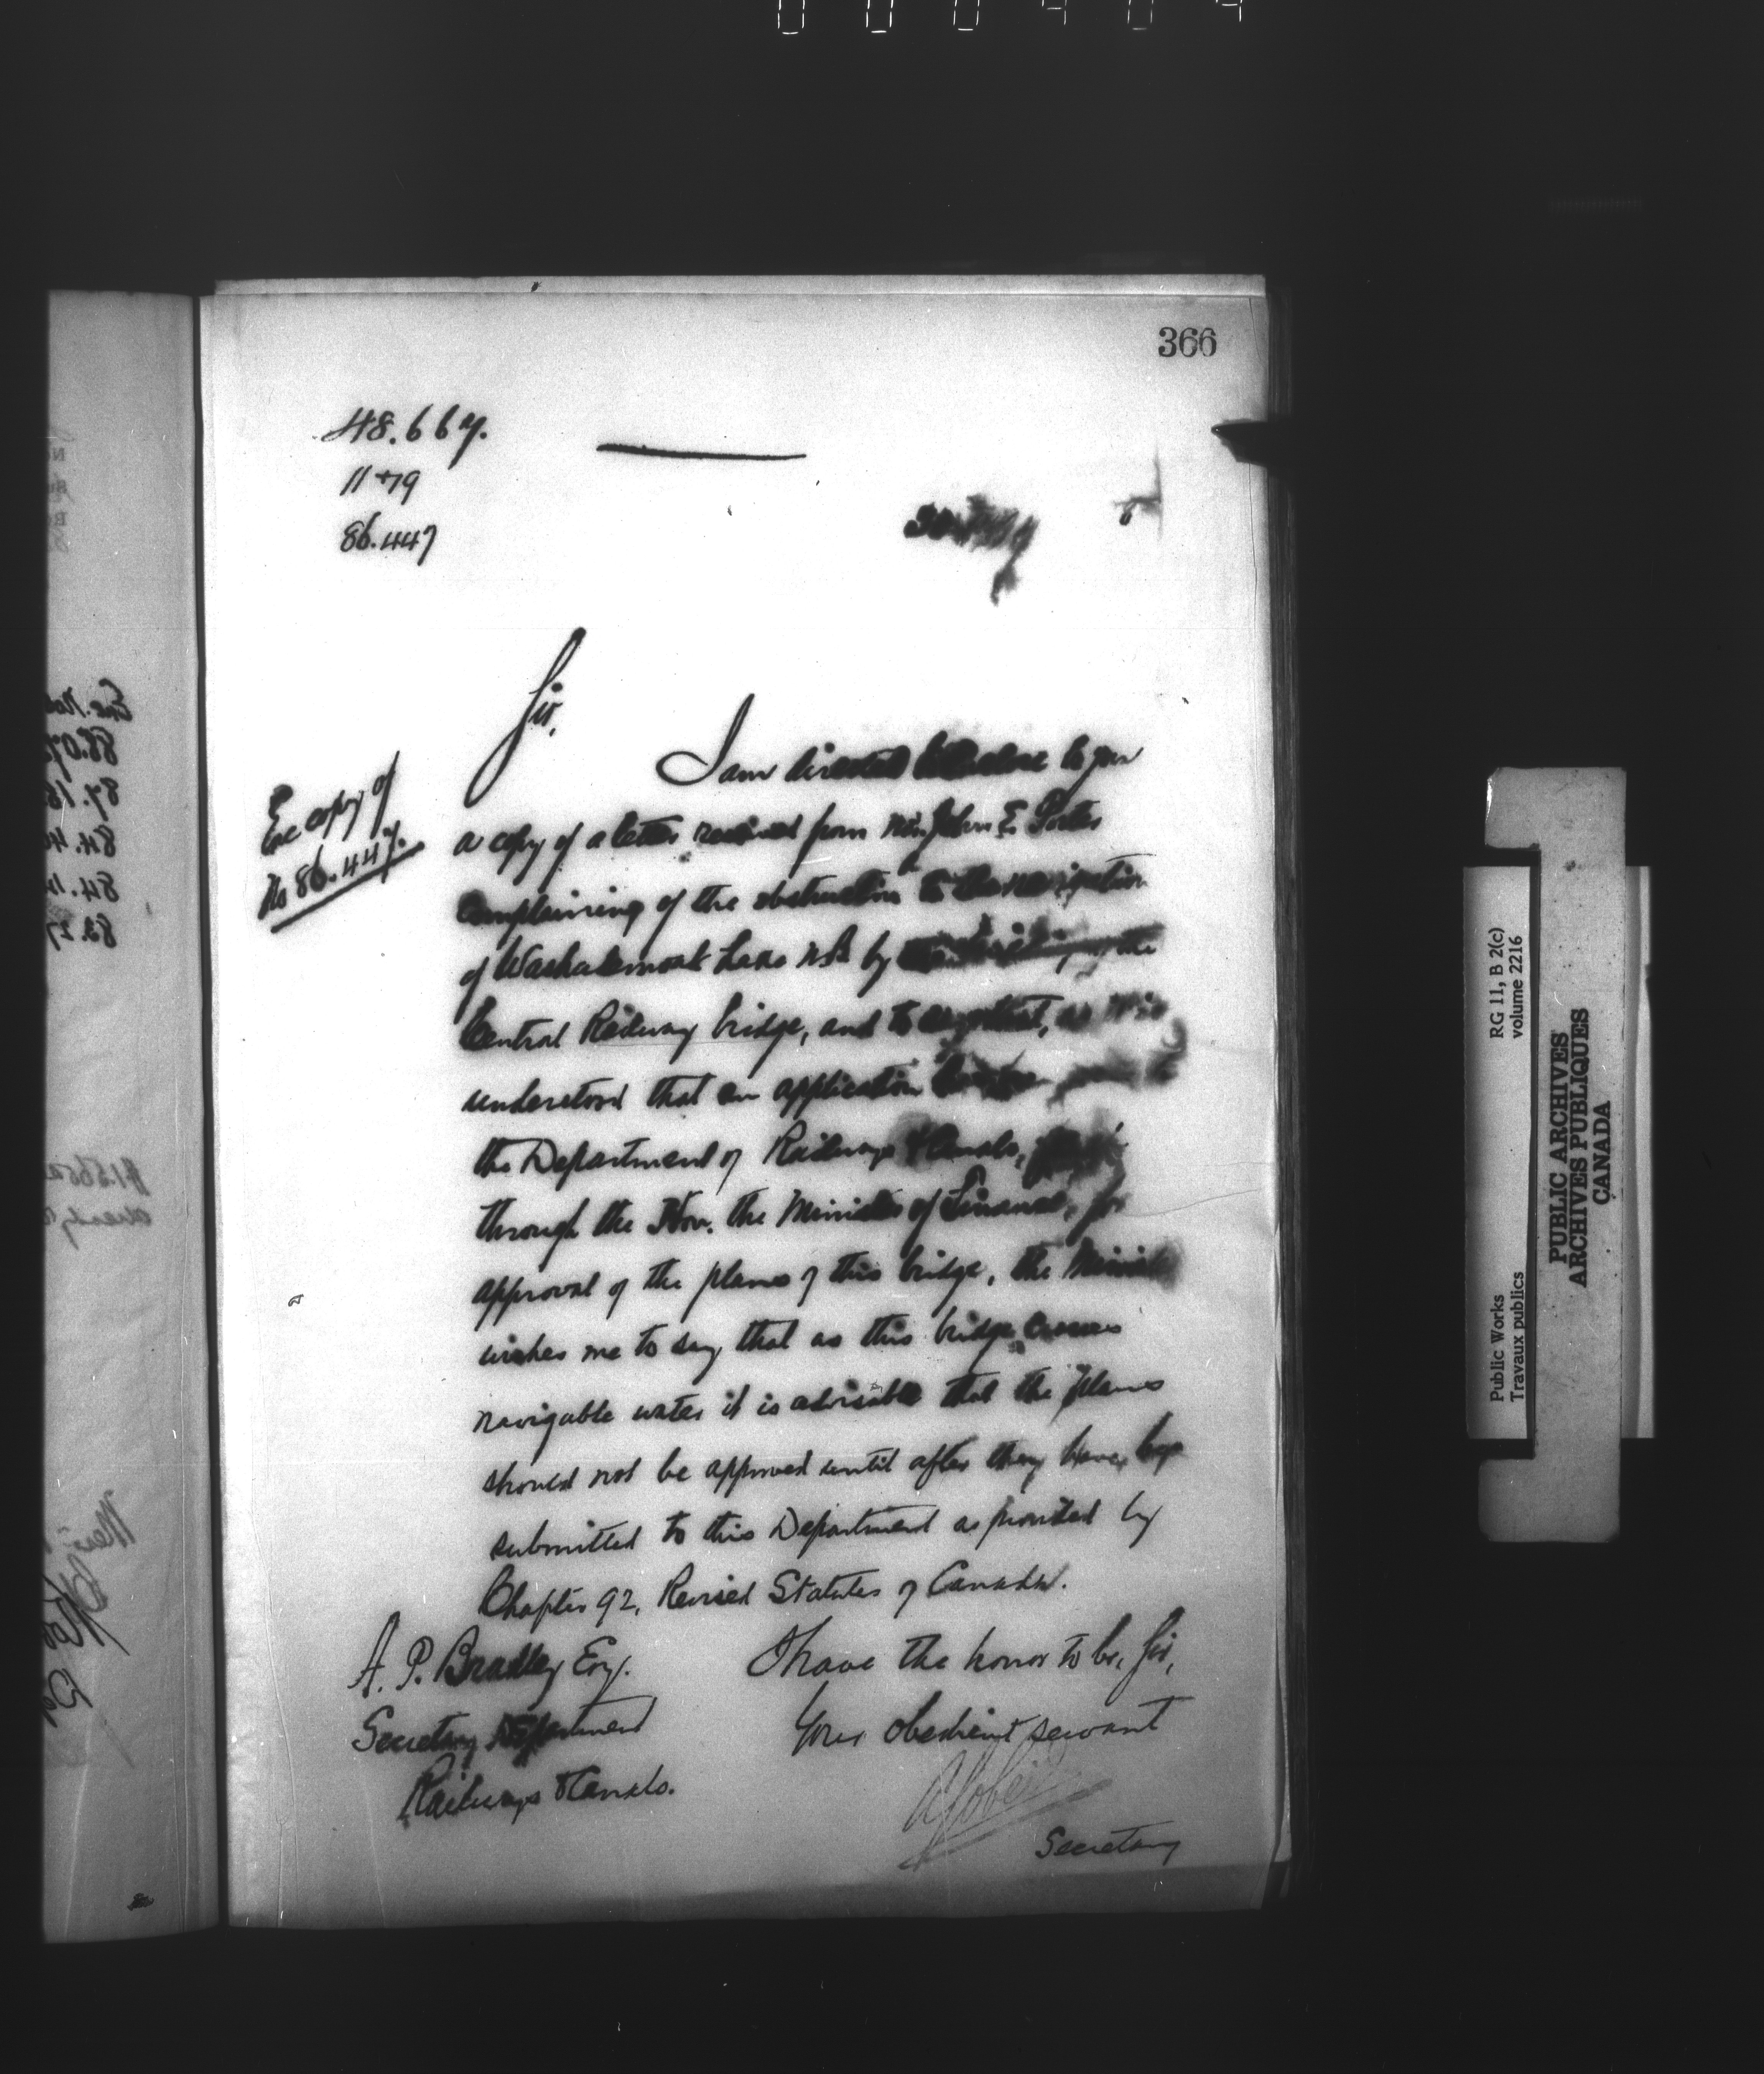 366
48.667.
11+79
86.447
Sir,
Enc copy of
No 86.447.
I am directed to enclose to you
a copy of a letter received from Mr. John E. Porter
complaining of the obstruction to the navigation
of Washademoak Lake N.B. by the
Central Railway bridge, and to say that, as it is
understood that an application
the Department of Railways & Canals,
through the Hon. the Minister of Finance, for
approval of the plans of this bridge, the Minister
wishes me to say that as this bridge crosses
navigable water it is advisable that the plans
should not be approved until after they have been
submitted to this Department as provided by
Chapter 92, Revised Statutes of Canada.
I have the honor to be, Sir,
Your obedient servant
A Gobeil
Secretary
A. P. Bradley Esq.
Secretary Department
Railways & Canals.
Public Works
Travaux publics
RG 11, B 2(c)
volume 2216
PUBLIC ARCHIVES
ARCHIVES PUBLIQUES
CANADA